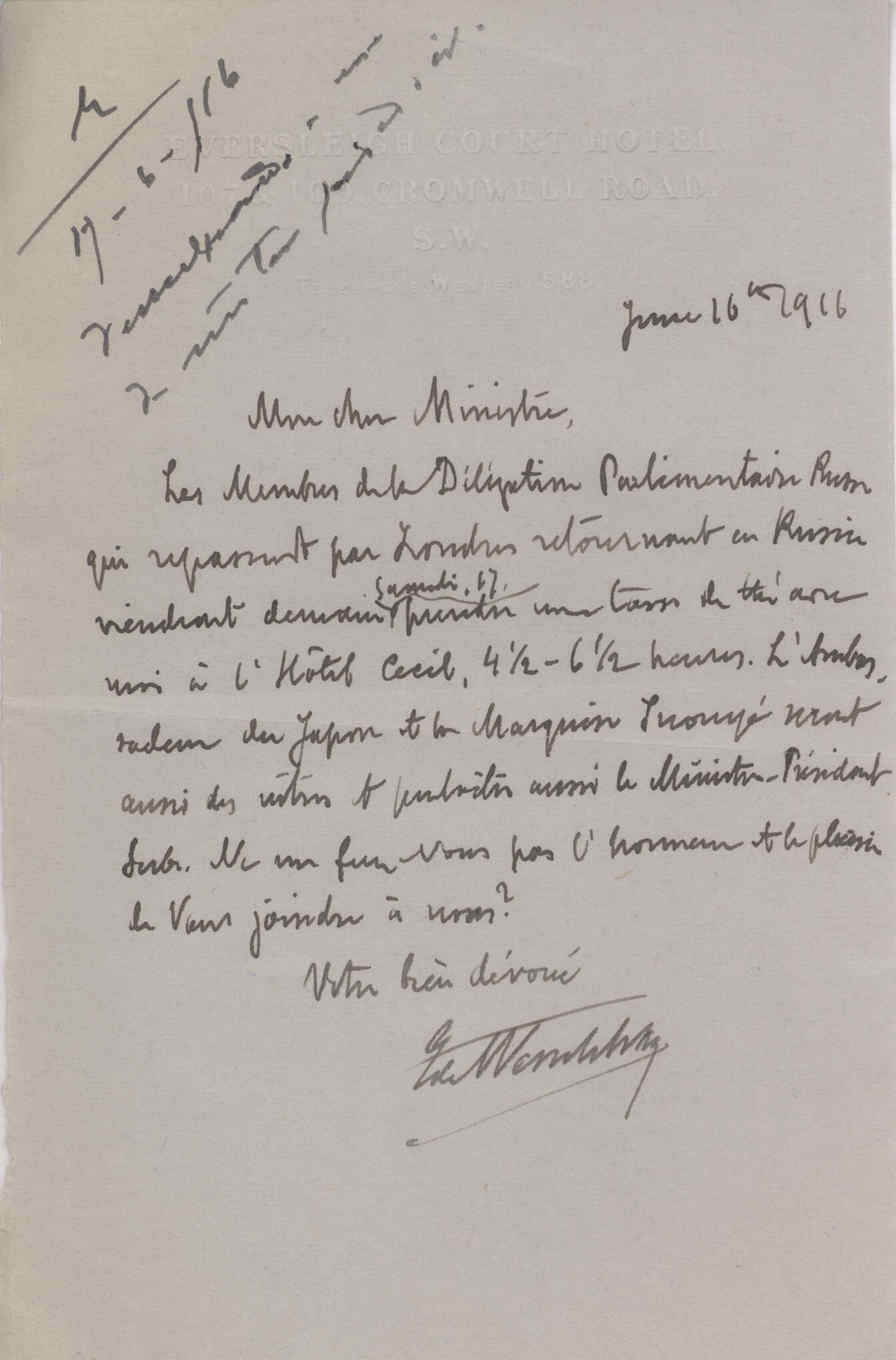 17-6-916
EVERSLEIGH COURT HOTEL,
107 & 109 CROMWELL ROAD,
S.W.
June 16th 1916
Mon cher Ministre,
Les Membres de la Délégation Parlimentaire Russe
qui repassent par Londres retournant en Russie
viendront demain Samedi, 17. prendre une tasse de thé avec
moi à l'Hôtel Cecil, 4½-6½ heures. L'Ambas-
sadeur du Japon et la Marquise Inouyé seront
aussi des nôtres et peutêtre aussi le Ministre-Président
Serbe. Ne me ferez-Vous pas l'honneur et le plaisir
de Vous joindre à nous?
Votre bien dévoué
G de Wesselitsky